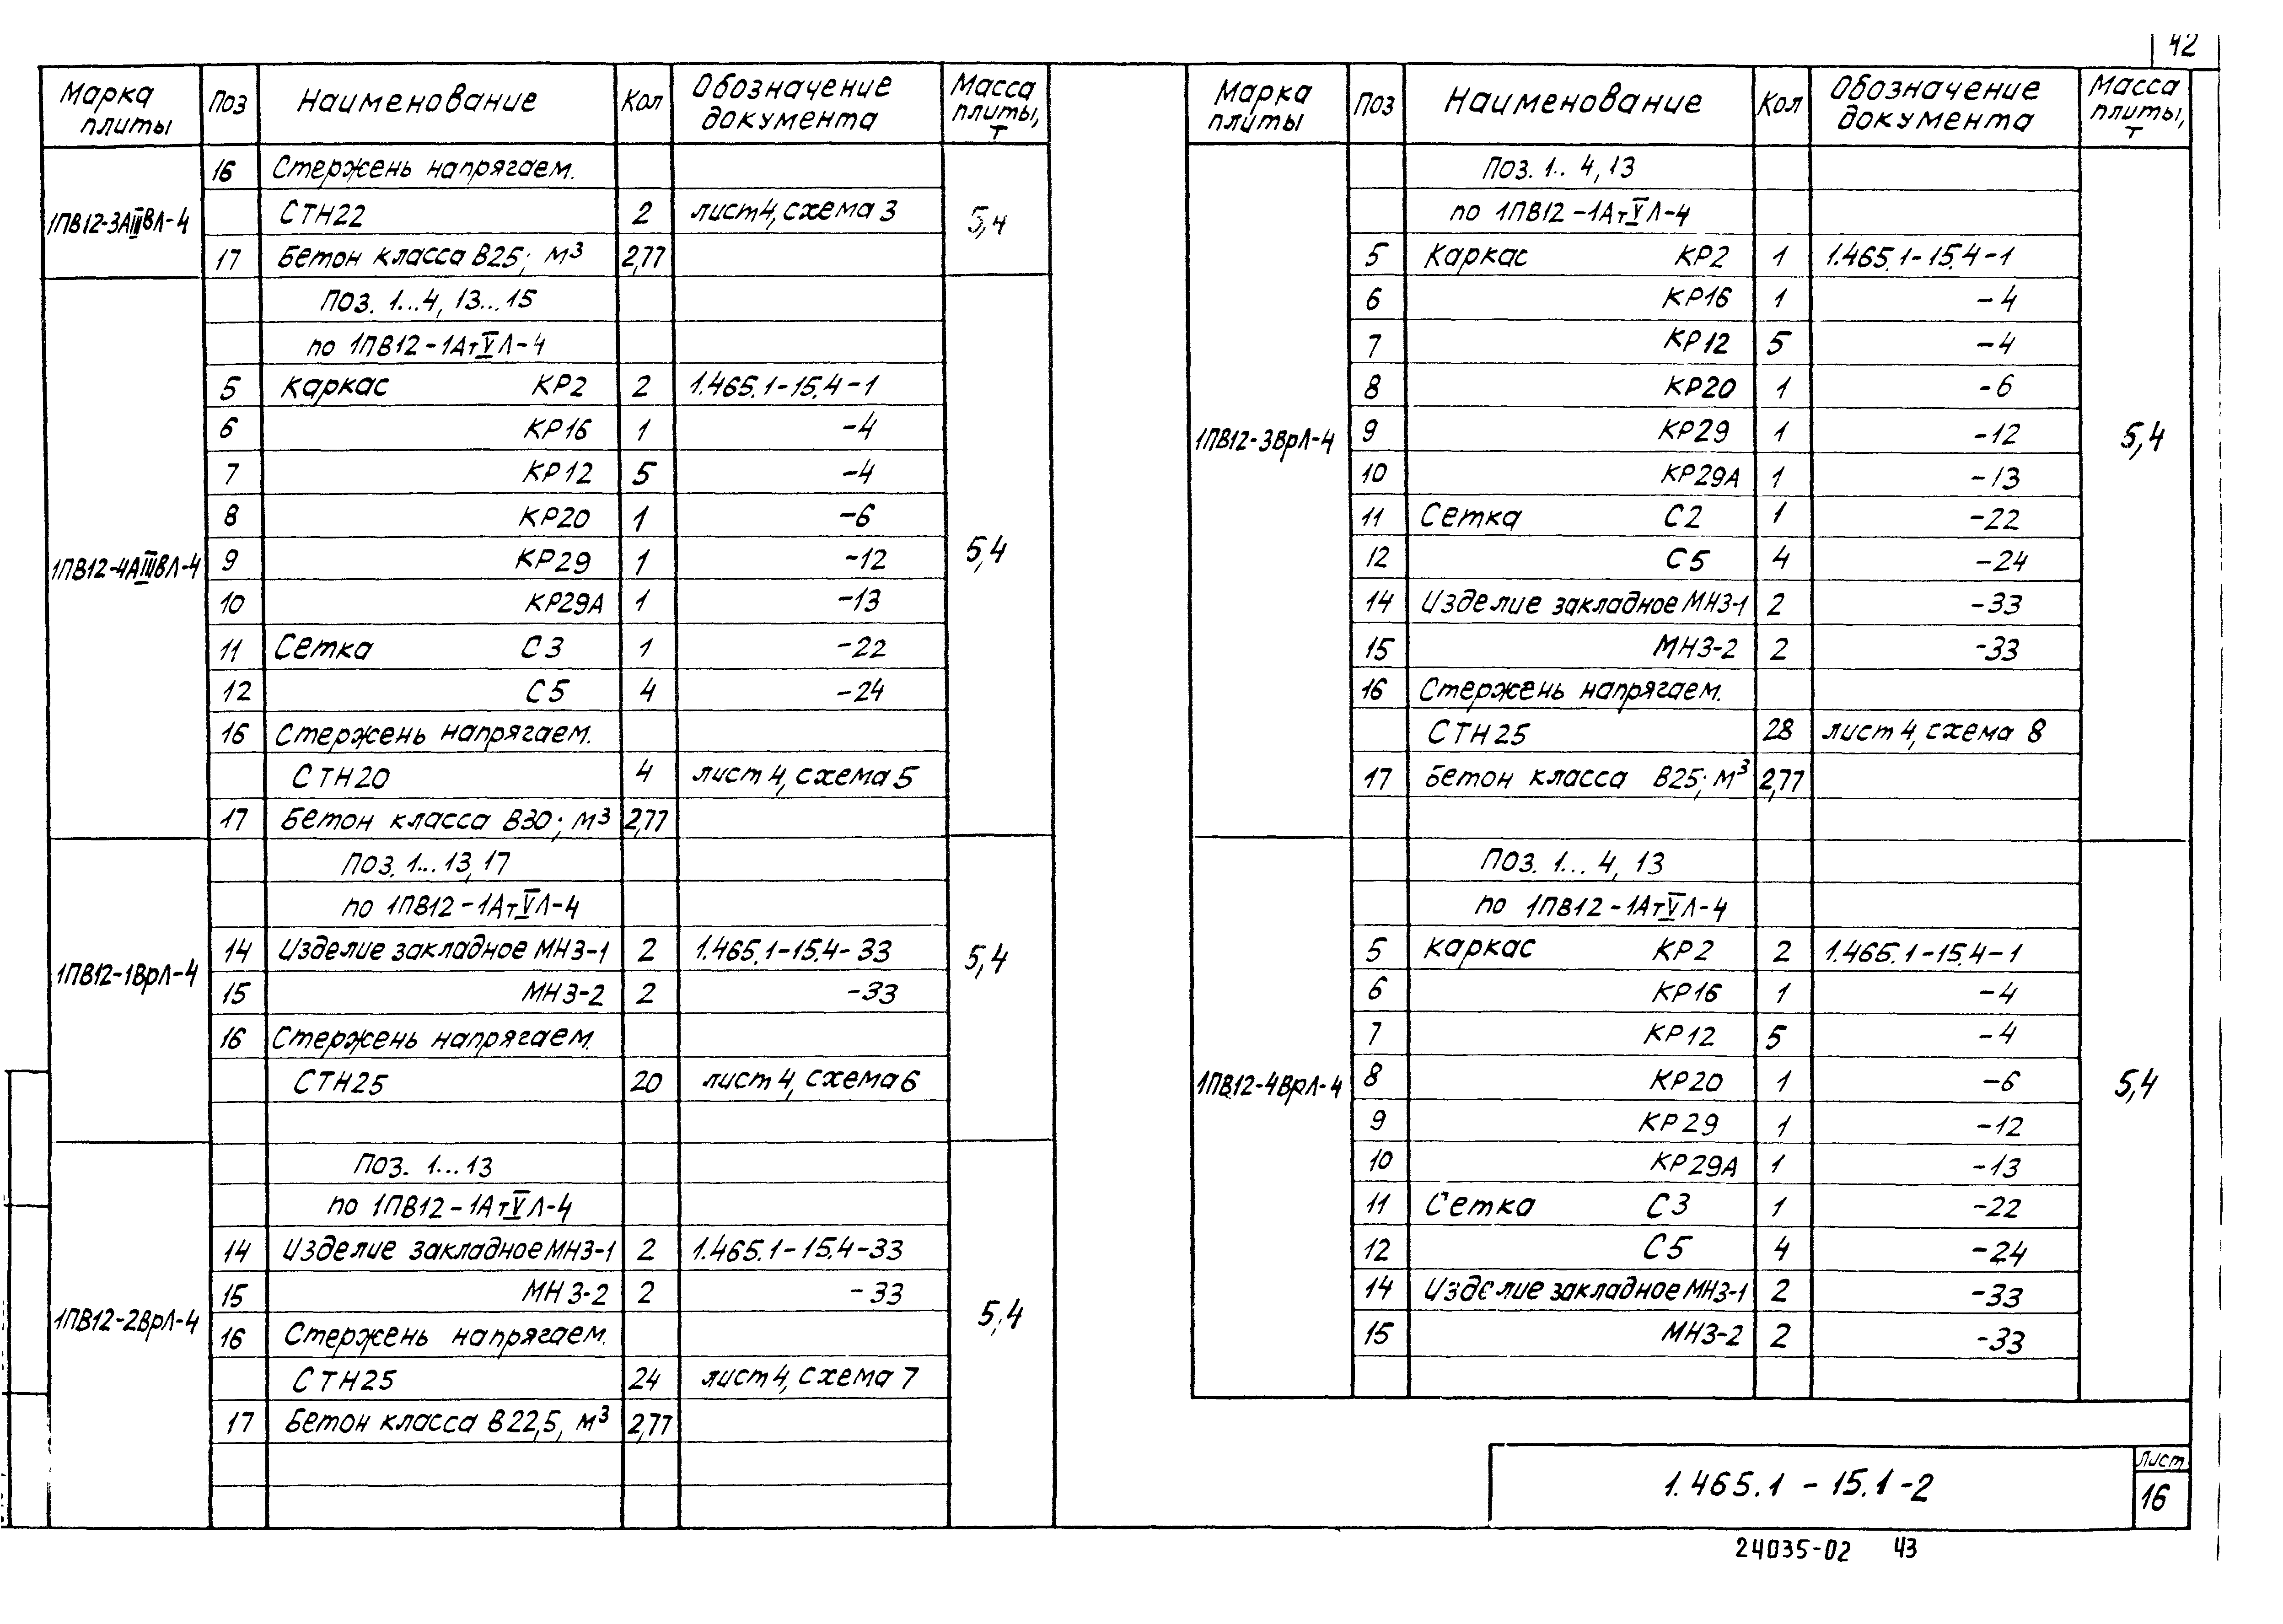 42
Марка плиты Поз Наименование Кол Обозначение документа Масса плиты, т
1ПВ12-3АIIIвЛ-4 5,4
16 Стержень напрягаем.
СТН22 2 лист 4, схема 3
17 Бетон класса В25; м³ 2,77
1ПВ12-4АIIIвЛ-4 5,4
Поз. 1...4, 13...15
по 1ПВ12-1АтVЛ-4
5 Каркас КР2 2 1.465.1-15.4-1
6 КР16 1 -4
7 КР12 5 -4
8 КР20 1 -6
9 КР29 1 -12
10 КР29А 1 -13
11 Сетка С3 1 -22
12 С5 4 -24
16 Стержень напрягаем.
СТН20 4 лист 4, схема 5
17 Бетон класса В30; м³ 2,77
1ПВ12-1ВрЛ-4 5,4
Поз. 1...13, 17
по 1ПВ12-1АтVЛ-4
14 Изделие закладное МН3-1 2 1.465.1-15.4-33
15 МН3-2 2 -33
16 Стержень напрягаем.
СТН25 20 лист 4, схема 6
1ПВ12-2ВрЛ-4 5,4
Поз. 1...13
по 1ПВ12-1АтVЛ-4
14 Изделие закладное МН3-1 2 1.465.1-15.4-33
15 МН3-2 2 -33
16 Стержень напрягаем.
СТН25 24 лист 4, схема 7
17 Бетон класса В22,5, м³ 2,77
Марка плиты Поз Наименование Кол Обозначение документа Масса плиты, т
1ПВ12-3ВрЛ-4 5,4
Поз. 1.. 4, 13
по 1ПВ12-1АтVЛ-4
5 Каркас КР2 1 1.465.1-15.4-1
6 КР16 1 -4
7 КР12 5 -4
8 КР20 1 -6
9 КР29 1 -12
10 КР29А 1 -13
11 Сетка С2 1 -22
12 С5 4 -24
14 Изделие закладное МН3-1 2 -33
15 МН3-2 2 -33
16 Стержень напрягаем.
СТН25 28 лист 4, схема 8
17 Бетон класса В25; м³ 2,77
1ПВ12-4ВрЛ-4 5,4
Поз. 1... 4, 13
по 1ПВ12-1АтVЛ-4
5 Каркас КР2 2 1.465.1-15.4-1
6 КР16 1 -4
7 КР12 5 -4
8 КР20 1 -6
9 КР29 1 -12
10 КР29А 1 -13
11 Сетка С3 1 -22
12 С5 4 -24
14 Изделие закладное МН3-1 2 -33
15 МН3-2 2 -33
1.465.1-15.1-2
Лист
16
24035-02 43